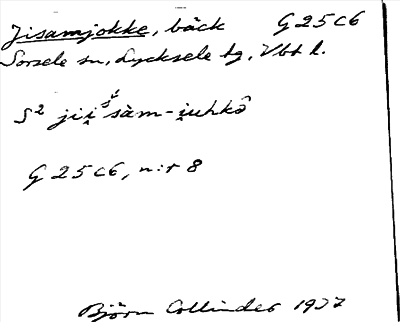 Jisamjokke, bäck G25C6
Sorsele sn, Lycksele tg, Vbt l.
S² jii̯śsàm-i̯uhkə̂
G 25 C6, n:r 8
Björn Collinder 1937